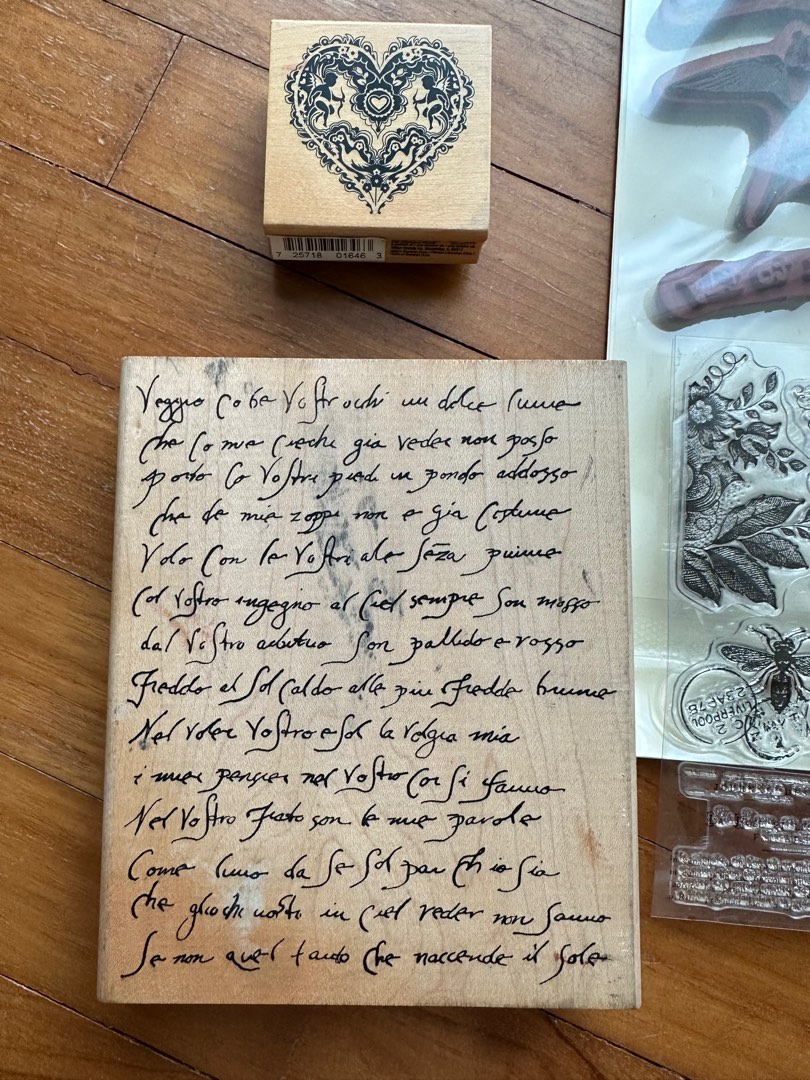 7 25718 01646 3
Veggio co be vostr ochi un dolce lume
che co mie ciechi gia veder non posso
porto co vostri piedi un pondo addosso
che de mie zoppi non e gia costume
Volo con le vostr ale sēza piume
col vostro ingegno al ciel sempre son mosso
dal vostro arbitrio son pallido e rosso
freddo al sol caldo alle piu fredde brume
Nel voler vostro e sol la voglia mia
i miei pensier nel vostro cor si fanno
Nel vostro fiato son le mie parole
Come luna da se sol par ch io sia
che gliochi nostri in ciel veder non sanno
se non quel tanto che naccende il sole
LIVERPOOL